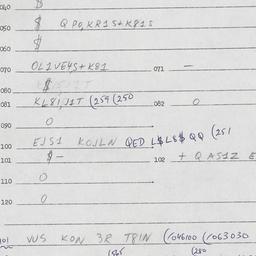 040 $
050 $ QPO,KR1S+K81S
060 $
070 OL1VE4S+K81 071 -
080
081 KL81,J1T (259 (250 082 0
090 0
100 EJS1 KOJLN QED L$L8$ QQ (251
101 $- 102 + QAS1Z E
110 0
120 0
101 VVS KON 3R T8IN (1046100 (1063030
(250